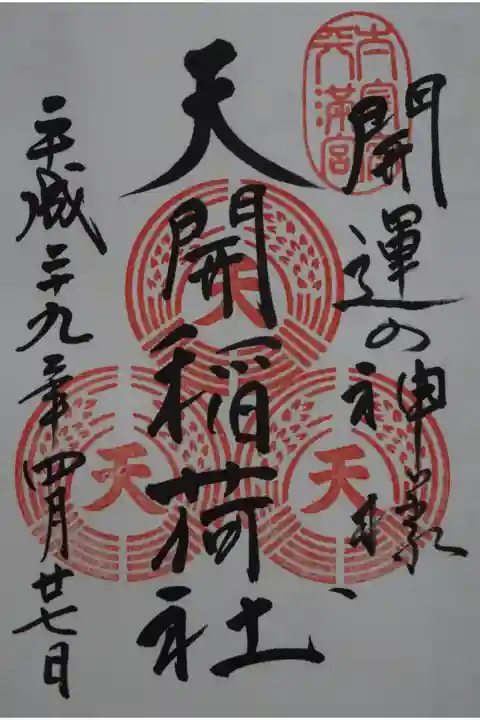 太宰府
天満宮
開運の神様
天開稲荷社
天
天
天
平成二十九年四月廿七日